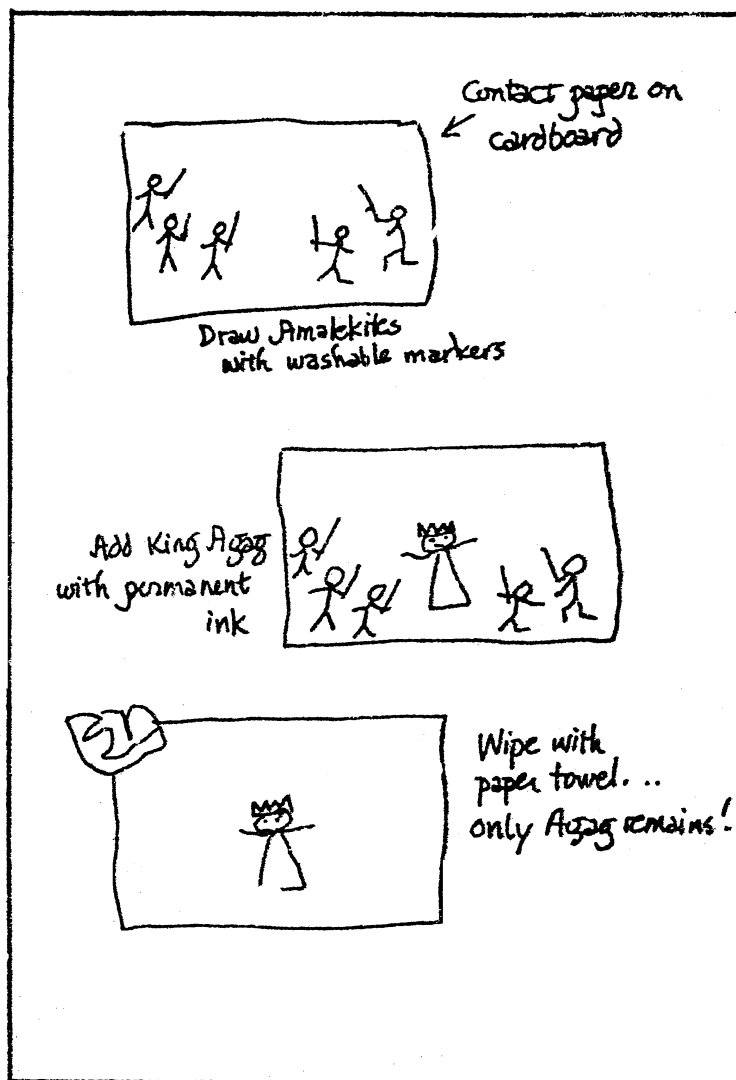 Contact paper on
cardboard
Draw Amalekites
with washable markers
Add King Agag
with permanent
ink
Wipe with
paper towel. . .
only Agag remains!